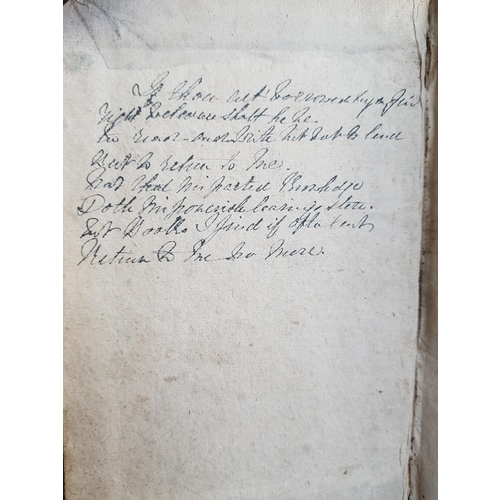 If thou art borrowed by a friend
right welcome shall he be
to read and write but not to lend
But to return to me.
Not that imparted knowledge
Doth learning Store.
But Books I find if often lent
Return to me no more.